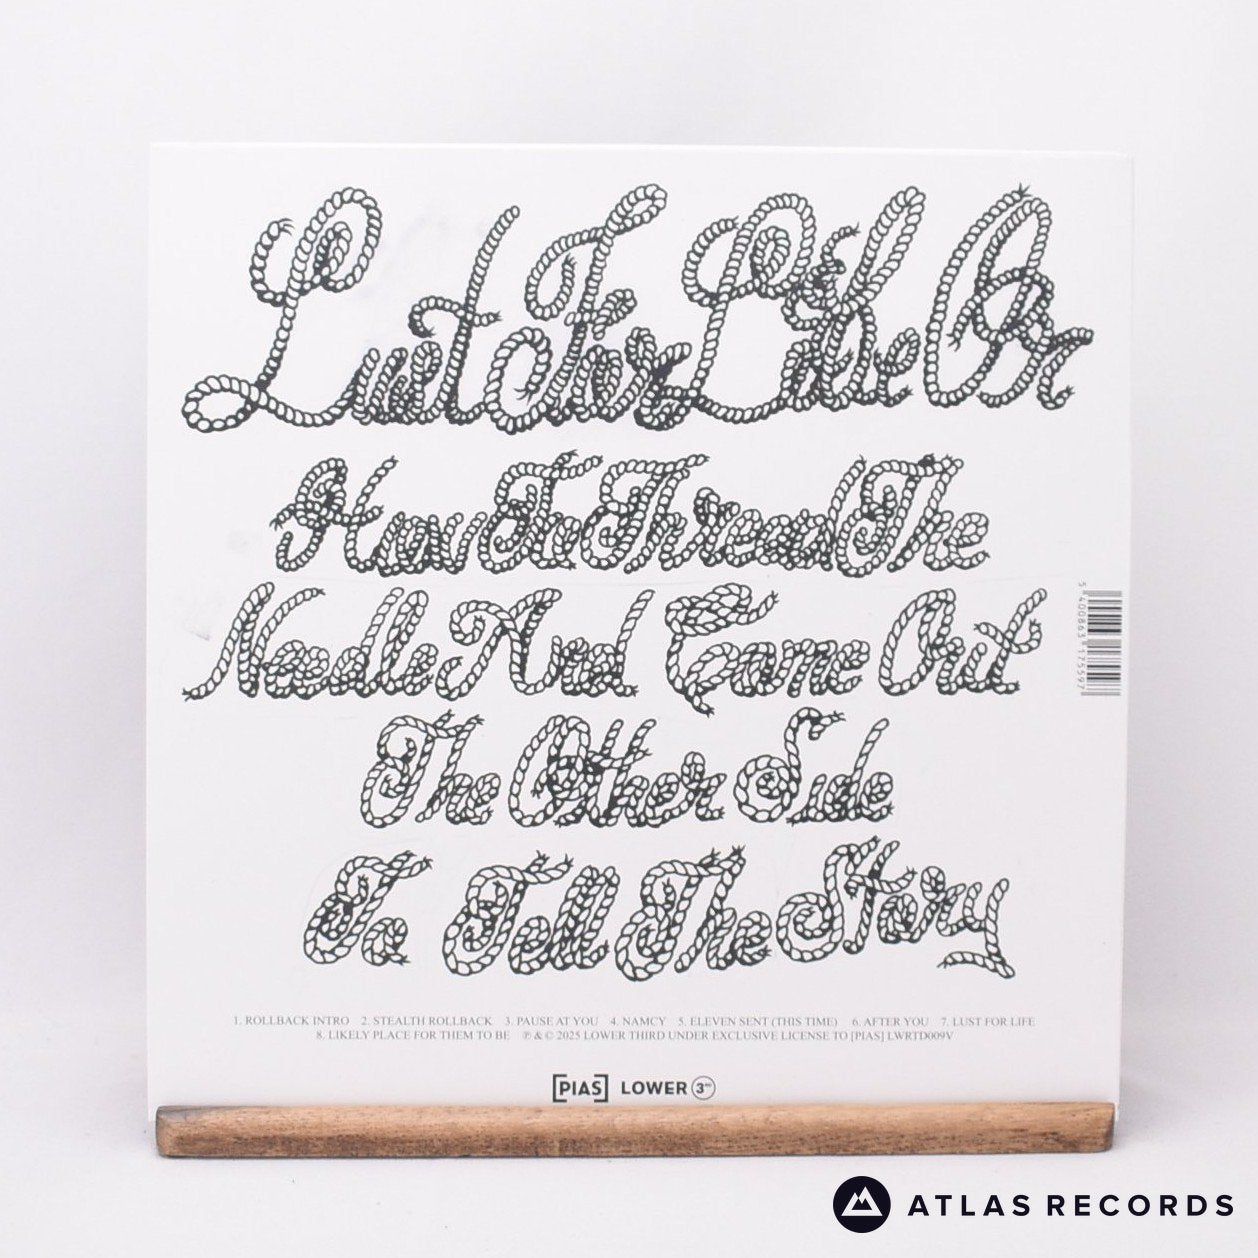 Lust For Life Or
How To Thread The
Needle And Come Out
The Other Side
To Tell The Story
1. ROLLBACK INTRO 2. STEALTH ROLLBACK 3. PAUSE AT YOU 4. NAMCY 5. ELEVEN SENT (THIS TIME) 6. AFTER YOU 7. LUST FOR LIFE
8. LIKELY PLACE FOR THEM TO BE ℗ & © 2025 LOWER THIRD UNDER EXCLUSIVE LICENSE TO [PIAS] LWRTD009V
5 400863 175597
[PIAS] LOWER 3RD
ATLAS RECORDS